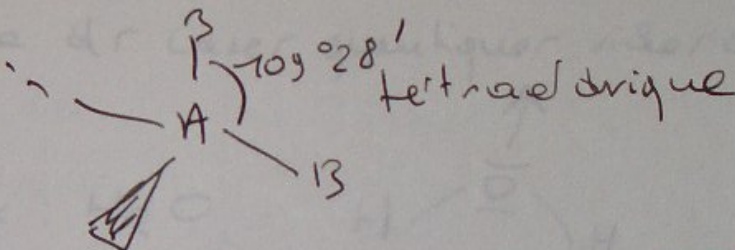 B
109°28'
tétraédrique
A
B